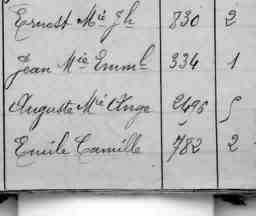 Ernest Mie Jh 830 2
Jean Mie Emml 334 1
Auguste Mie Ange 2496 5
Emile Camille 782 2